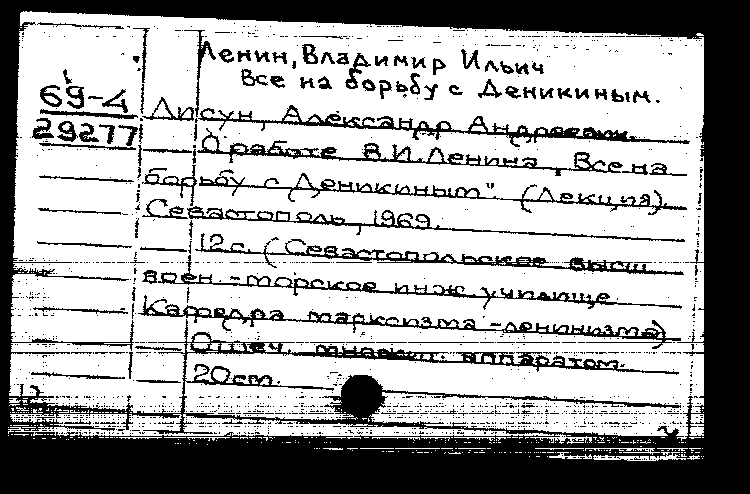 Ленин, Владимир Ильич
Все на борьбу с Деникиным.
69-4
29277
Лисун, Александр Андреевич.
О работе В.И.Ленина „Все на
борьбу с Деникиным" (Лекция).
Севастополь, 1969.
12с. (Севастопольское высш.
воен.-морское инж. училище.
Кафедра марксизма-ленинизма)
Отпеч. множит. аппаратом.
20см.